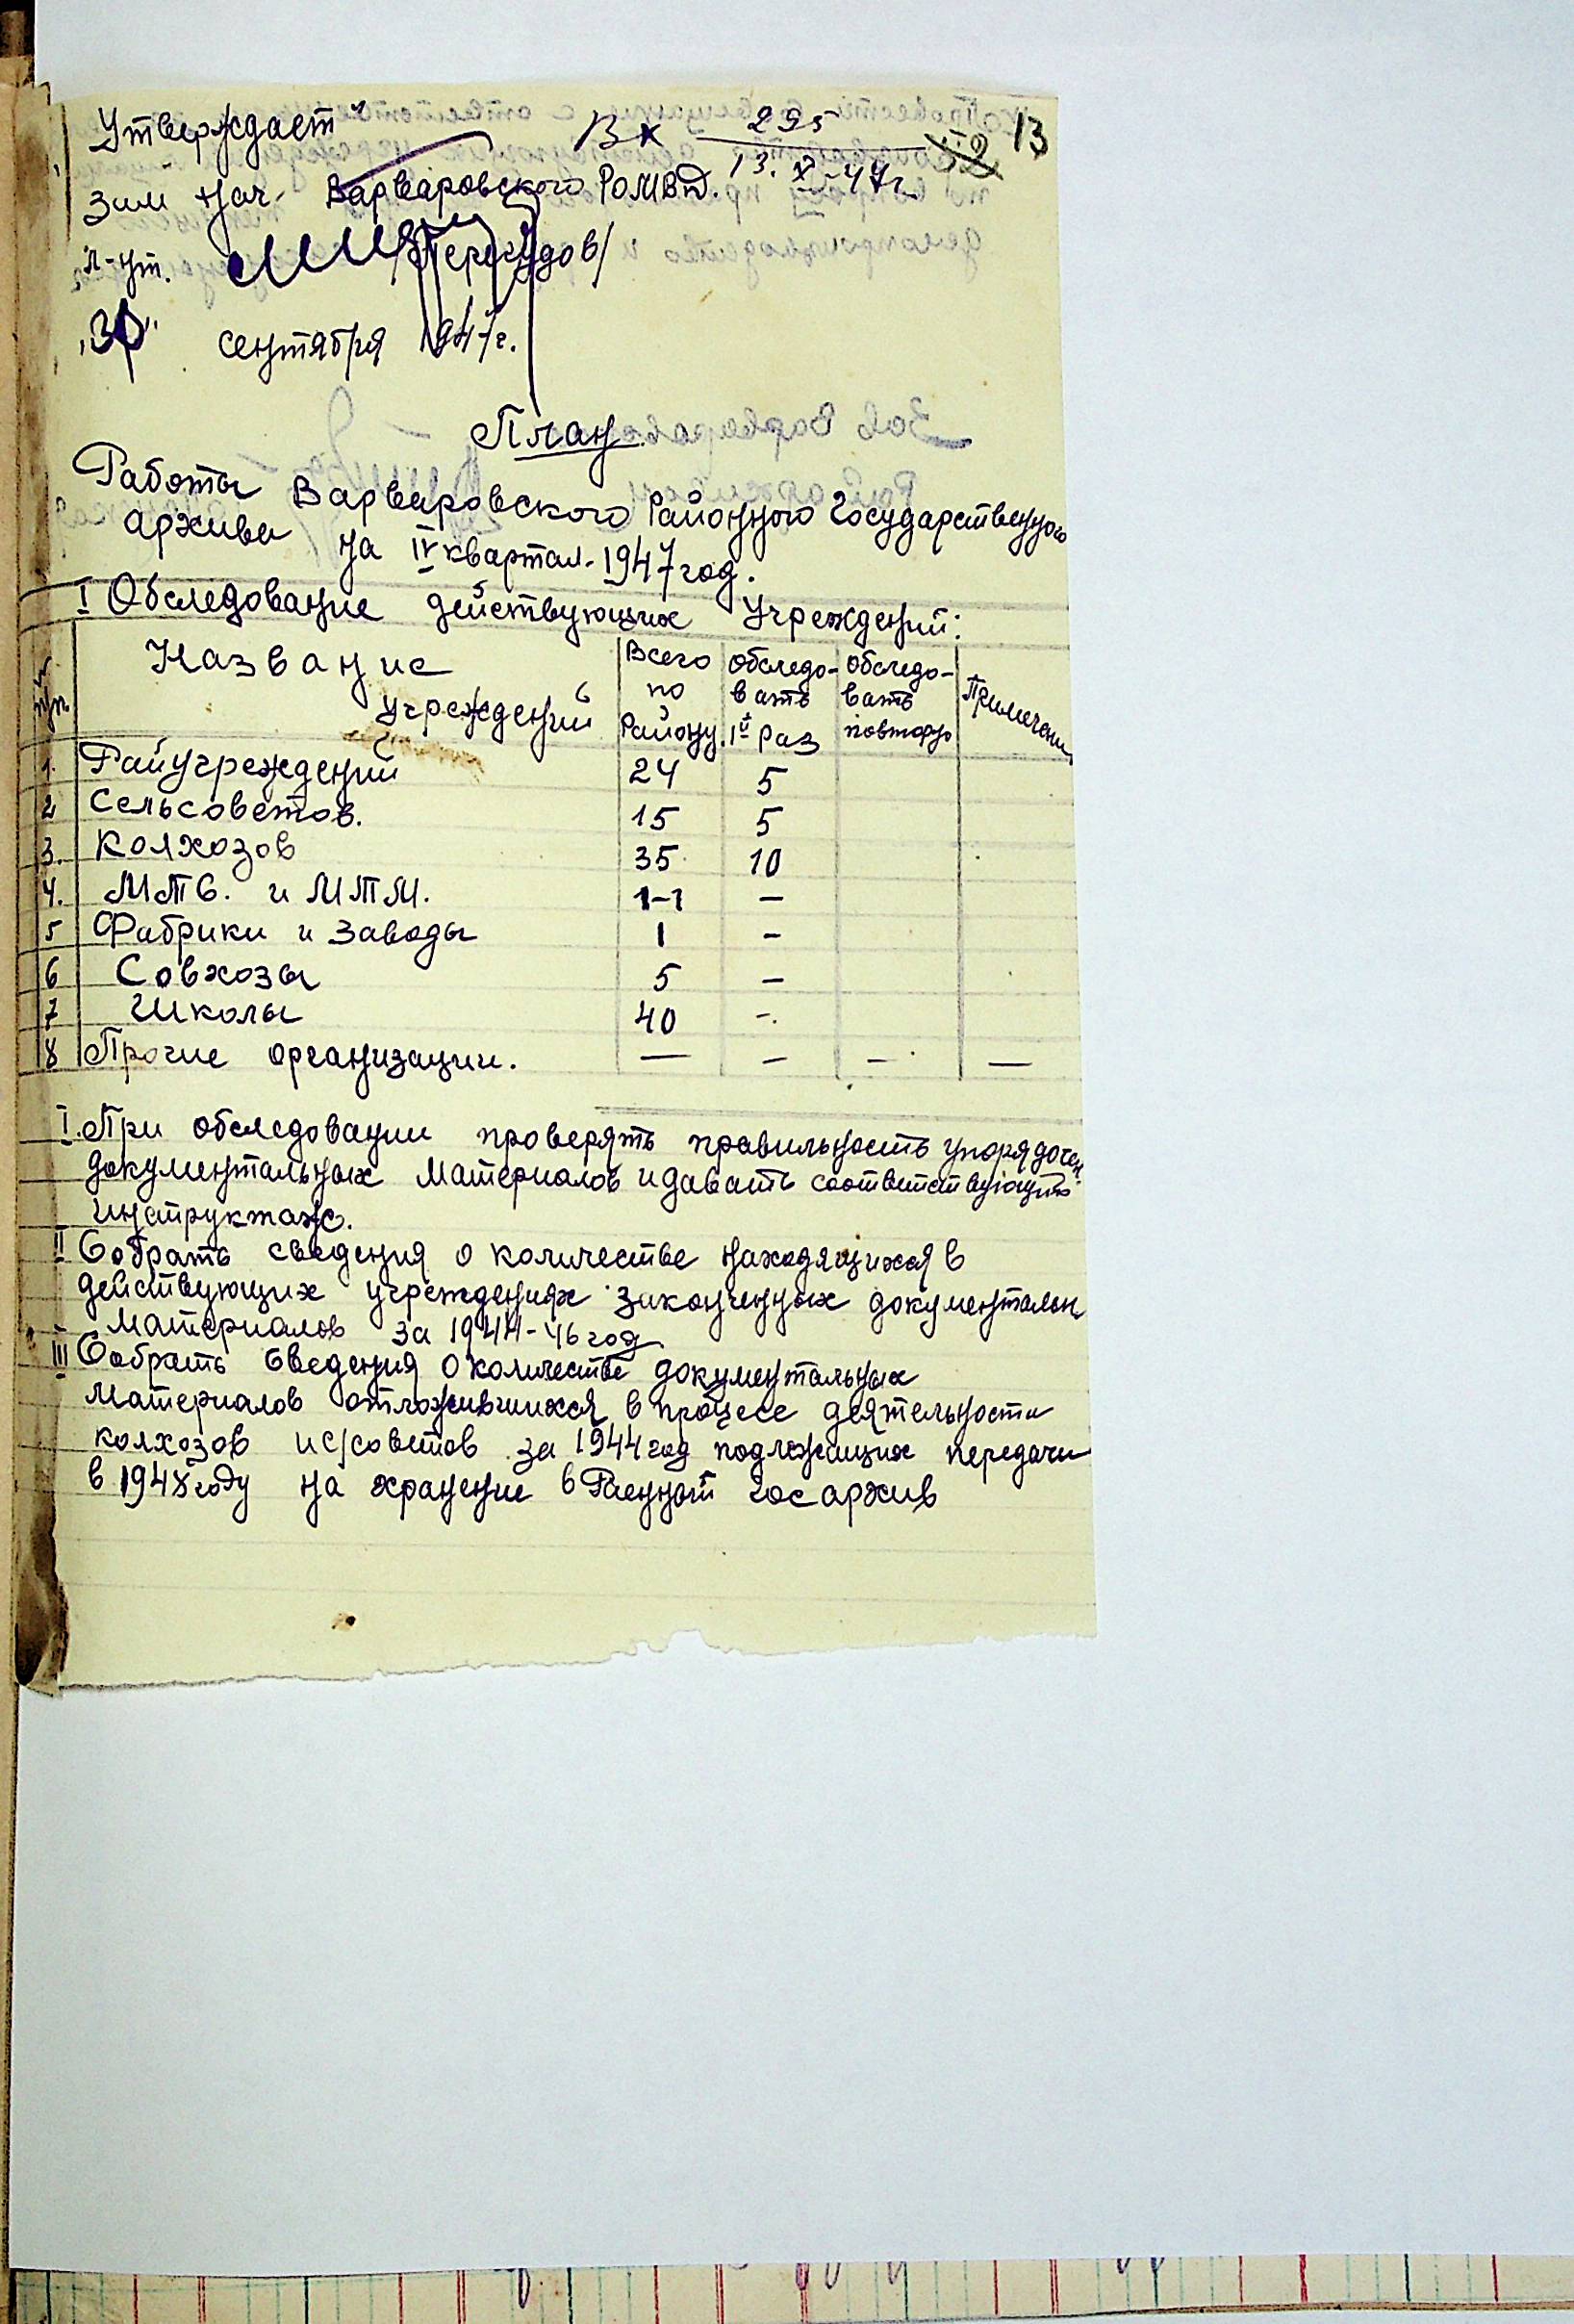 Утверждает
Вх 295
13. X-47г
13
Зам нач. Варваровского РОМВД.
л-нт. /Перегудов/
„30" сентября 1947г.
План
Работы Варваровского Районного Государственного
архива на IV квартал. 1947 год.
I Обследование действующих Учреждений:
№ п/п. Название учреждений Всего по Району. Обследовать I й раз Обследовать повторно Примечени
1. Райучреждений 24 5
2 Сельсоветов. 15 5
3. Колхозов 35 10
4. МТС. и МТМ. 1-1 —
5 Фабрики и Заводы 1 —
6 Совхозы 5 —
7 Школы 40 —.
8 Прочие организации. — — — —
I. При обследовании проверять правильность упорядочен.
документальных материалов и давать соответствующий
инструктаж.
II Собрать сведения о количестве находящихся в
действующих учреждениях законченных документальн
материалов за 1944-46 год
III Собрать Сведения о количестве документальных
материалов отложившихся в процесе деятельности
колхозов и с/советов за 1944 год подлежащих передачи
в 1948 году на хранение в Раенный госархив